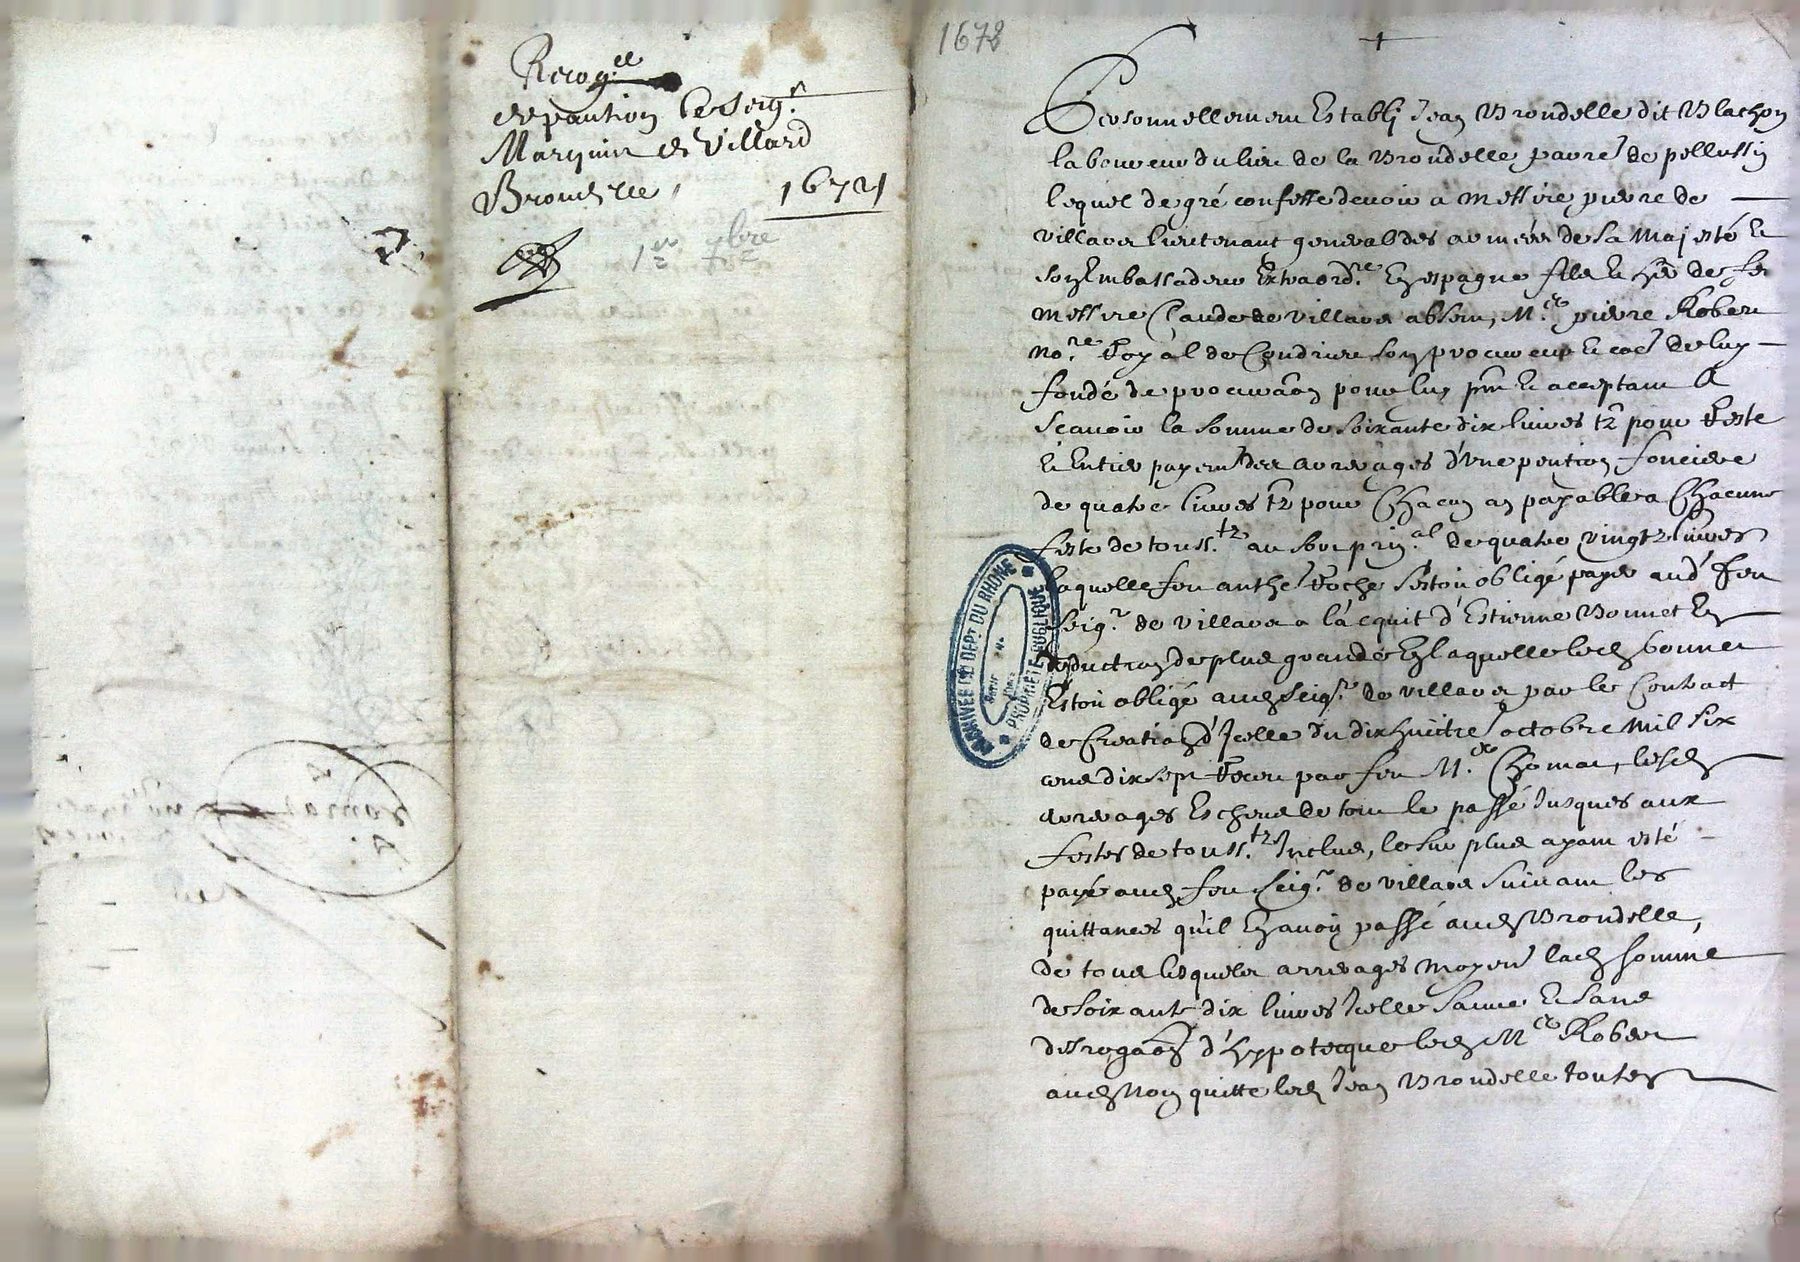 Recog.ce
de pantion le seig.r
Marquis de Villard
Brondelle, 1672
1er 7bre
1672
Personnellement Establj Jean Brondelle dit Blachon
laboureur du lieu de la Brondelle parre de pellussin
lequel de gré confesse devoir a messire pierre de
villars lieutenant general des armées de sa Majesté et
son Embassadeur Extraord.re En espagne fils et her de feu
messire Claude de villars absent, M.e pierre Robert
no.re Royal de Condrieu son procureur et coe de luy
fondé de procuraon pour luy pnt et acceptant A
Scavoir la somme de soixante dix livres tz pour Reste
et Entier payemt des arrerages d'vne pention fonciere
de quatre livres tz pour Chacun an payable a Chacune
feste de touss.tz au sort prin.al de quatre vingtz livres
laquelle feu anthe Roche s'estoit obligé payer aud feu
Seig.r de villars a l'acquit d'Estienne Bonnet En
deduction de plus grande En laquelle led bonnet
Estoit obligé aud Seig.r de villars par le Contract
de Creation d'Jcelle du dixhuictre octobre mil six
cent dix sept Receu par feu M.e Chomat, lesd
arrerages Escheus de tout le passé Jusques aux
festes de touss.tz Inclus, le surplus ayant esté
payé aud feu seig.r de villars suivant les
quittances qu'il En avoit passé aud Brondelle,
de tous lesquels arrerages moyent lad somme
de soixante dix livres Jcelle sauve et sans
desrogaon d'hypotecque led M.e Robert
aud Nom quitte led Jean Brondelle toutes
ARCHIVES DU DEPT DU RHONE
PROPRIETE PUBLIQUE